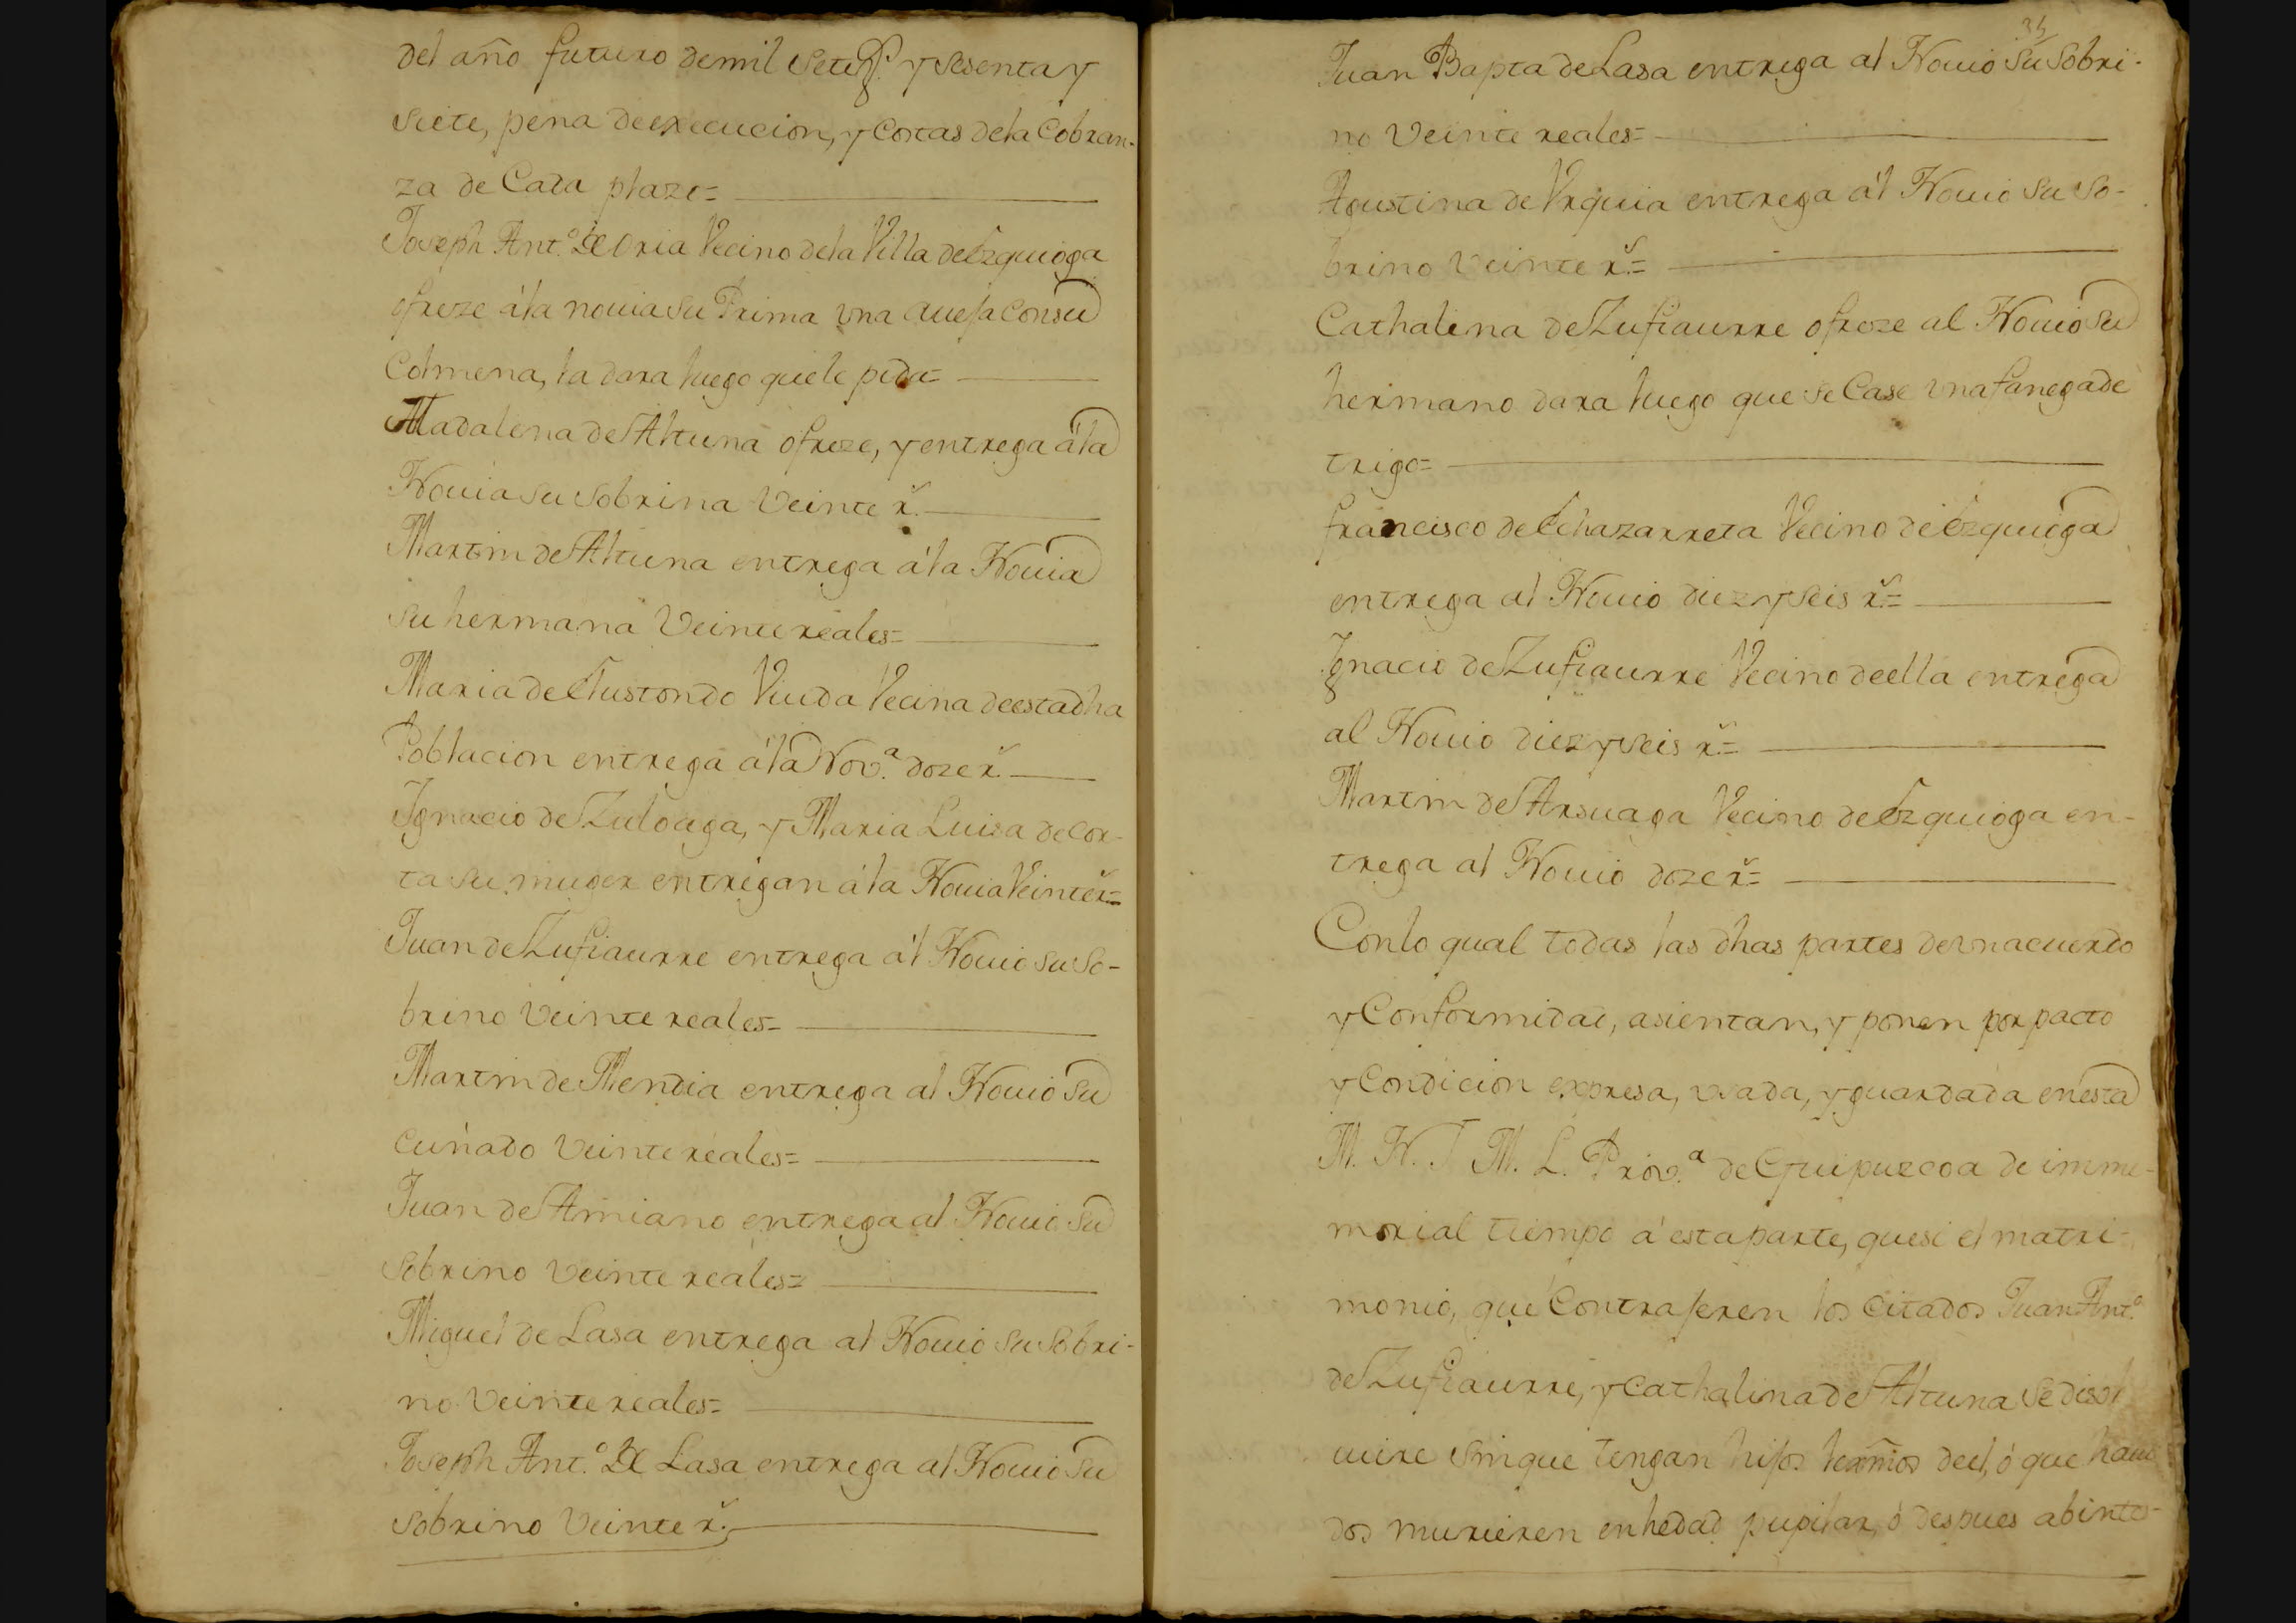 del año futuro demil Setez.s y sesenta y
siete, pena deexecucion, y Costas dela Cobran-
za de Cada plazo=
Joseph Ant.o De Oria Vecino dela Villa deEzquioga
ofreze a la novia su Prima vna aueja Consu
Colmena, la dara luego quele pida=
Madalena de Altuna ofreze, y entrega a la
Nouia su sobrina Veinte r.s
Martin de Altuna entrega a la Nouia
su hermana Veinte reales=
Maria de Elustondo Viuda Vecina deesta dha
Poblacion entrega a la Nov.a doze r.s
Ignacio de Zuloaga, y Maria Luisa de Cor-
ta su muger entregan a la Nouia Veinte r.s=
Juan de Zufiaurre entrega al Nouio su So-
brino Veinte reales=
Martin de Mendia entrega al Nouio su
Cuñado Veinte reales=
Juan de Amiano entrega al Nouio su
Sobrino Veinte reales=
Miguel de Lasa entrega al Nouio su Sobri-
no Veinte reales=
Joseph Ant.o De Lasa entrega al Nouio su
Sobrino Veinte r.s
Juan Bapta de Lasa entrega al Nouio su Sobri-
no Veinte reales=
Agustina de Vrquia entrega al Nouio su So-
brino Veinte r.s=
Cathalina de Zufiaurre ofreze al Nouio su
hermano dara luego que se Case vna fanega de
trigo=
francisco de Echazarreta Vecino de Ezquioga
entrega al Nouio diez y seis r.s=
Ignacio de Zufiaurre Vecino deella entrega
al Nouio diez y seis r.s=
Martin de Arsuaga Vecino de Ezquioga en-
trega al Nouio doze r.s=
Conlo qual todas las dhas partes devnacuerdo
y Conformidad, asientan, y ponen por pacto
y Condicion expresa, vsada, y guardada en esta
M. N. Y M. L. Prov.a de Guipuzcoa de imme-
morial tiempo a esta parte, quesi el matri-
monio, que Contrajeren los Citados Juan Ant.o
de Zufiaurre, y Cathalina de Altuna se disol
uiere sinque tengan hijos lextmos deel, ó que haui
dos murieren enhedad pupilar, ó despues abintes-